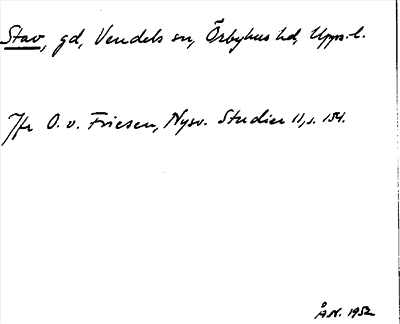 Stav, gd, Vendels sn, Örbyhus hd, Upps. l.
Jfr O. v. Friesen, Nysv. Studier 11, s. 154.
Å.N. 1952